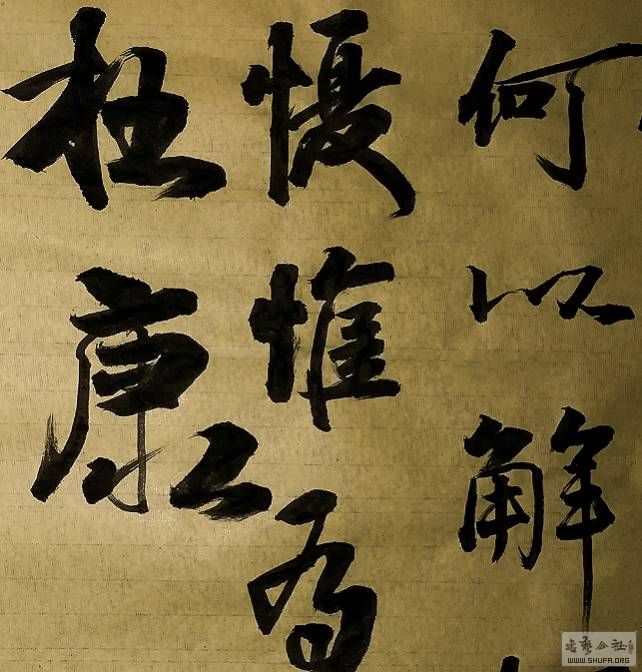 何以解
懮惟有
杜康
书艺公社
WWW.SHUFA.ORG